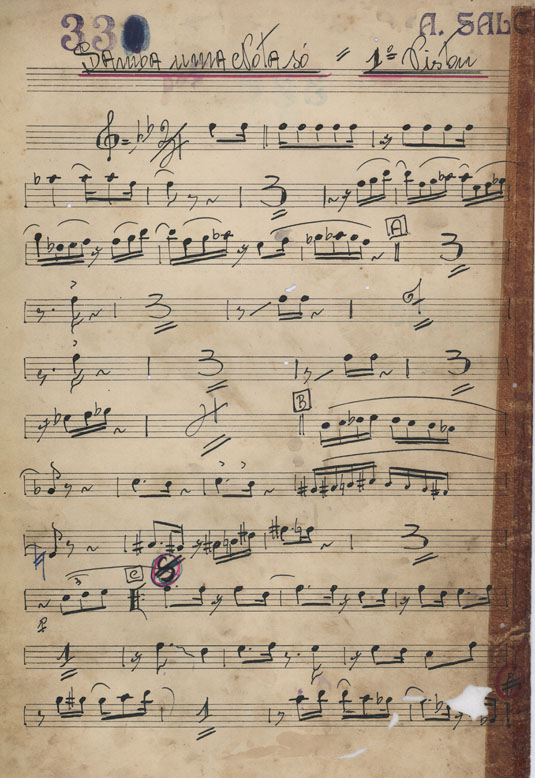 330 A. SALC
Samba uma Nota só = 1º Piston
2/4
3
A
3
3
3
3
B
3
3
C
1
1